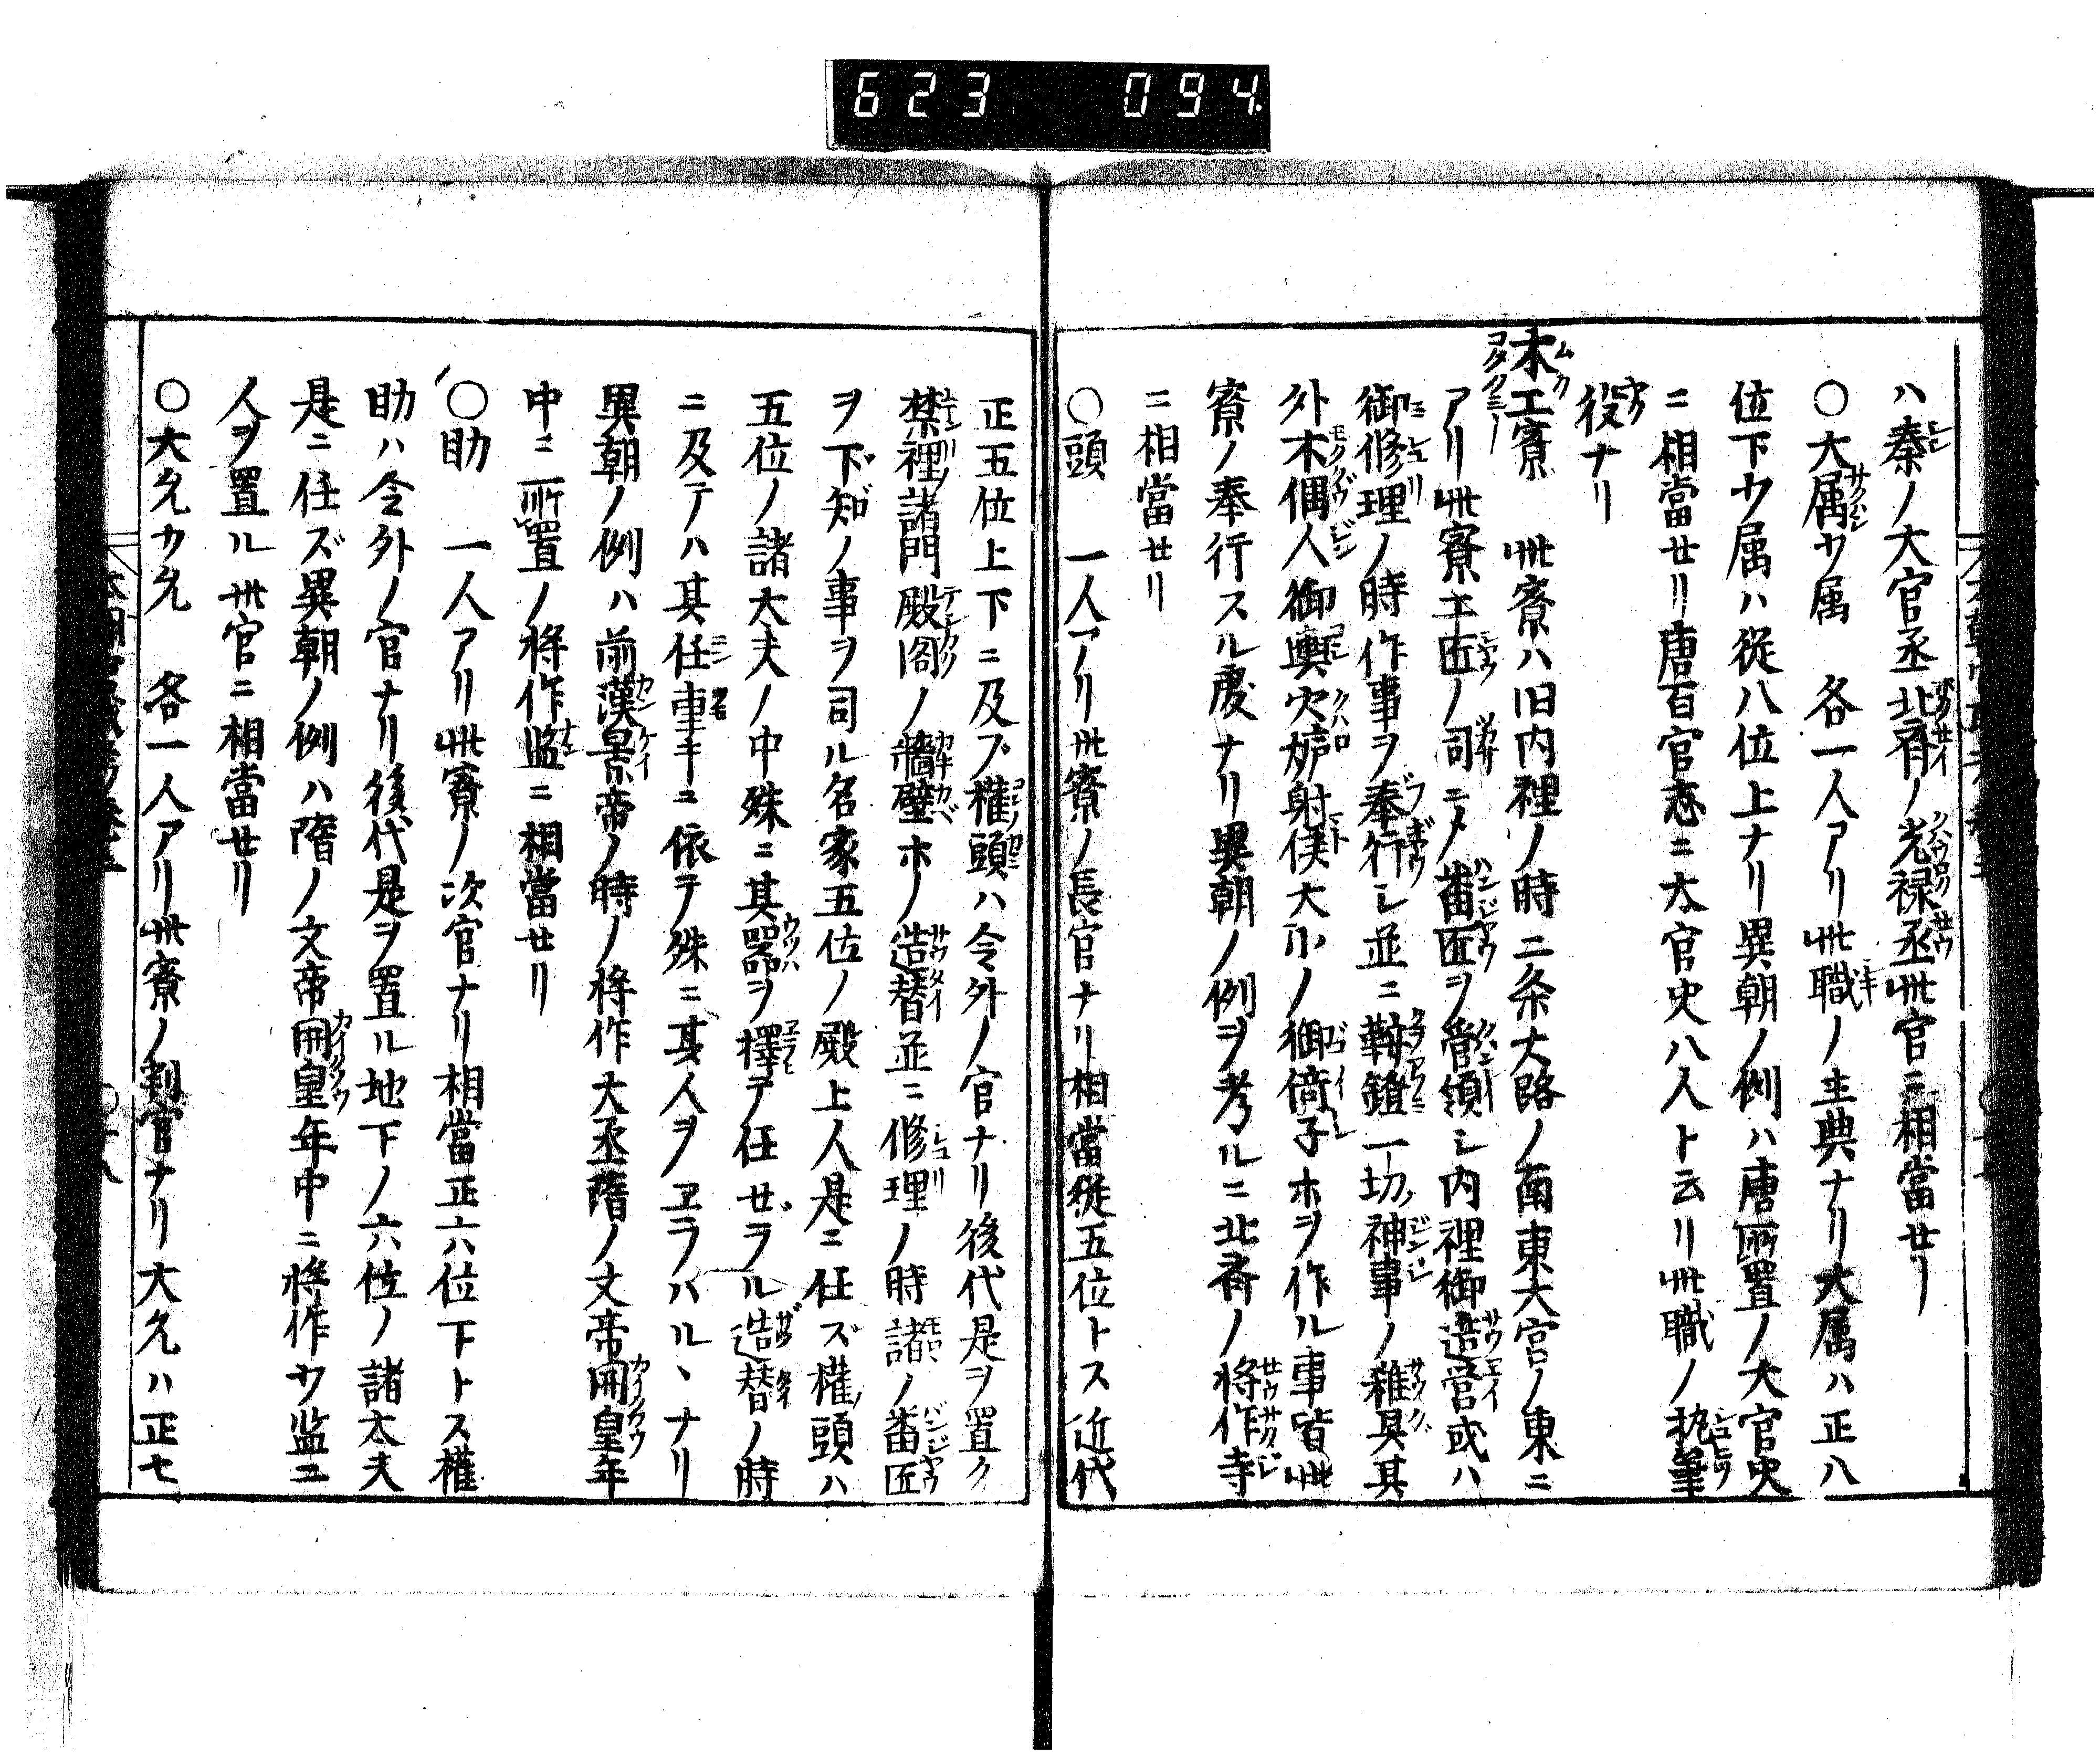 623 094
ハ秦ノ大官丞北斉ノ光禄丞此官ニ相當せリ
〇大属少属 各一人アリ此職ノ主典ナリ大属ハ正八
位下少属ハ従八位上ナリ異朝ノ例ハ唐所置ノ大官史
ニ相當せリ唐百官志ニ大官史八人ト云リ此職ノ執筆
役ナリ
木工寮 此寮ハ旧内裡ノ時二条大路ノ南東大宮ノ東ニ
アリ此寮工匠ノ司ニメ番匠ヲ管領シ内裡御造営或ハ
御修理ノ時作事ヲ奉行シ並ニ鞍鐙一切神事ノ雑具其
外木偶人御輿火炉射侯大小ノ御倚子ホヲ作ル事皆此
寮ノ奉行スル處ナリ異朝ノ例ヲ考ルニ北斉ノ将作寺
ニ相當せリ
〇頭 一人アリ此寮ノ長官ナリ相當従五位トス近代
正五位上下ニ及ブ權頭ハ令外ノ官ナリ後代是ヲ置ク
禁裡諸門殿閣ノ牆壁ホノ造替並ニ修理ノ時諸ノ番匠
ヲ下知ノ事ヲ司ル名家五位ノ殿上人是ニ任ズ權頭ハ
五位ノ諸大夫ノ中殊ニ其器ヲ擇テ任せラル造替ノ時
ニ及テハ其任事キニ依テ殊ニ其人ヲヱラハルヽナリ
異朝ノ例ハ前漢景帝ノ時ノ将作大丞隋ノ文帝開皇年
中ニ所置ノ将作監ニ相當せリ
〇助 一人アリ此寮ノ次官ナリ相當正六位下トス權
助ハ令外ノ官ナリ後代是ヲ置ル地下ノ六位ノ諸大夫
是ニ任ズ異朝ノ例ハ隋ノ文帝開皇年中ニ将作少監二
人ヲ置ル此官ニ相當せリ
〇大允少允 各一人アリ此寮ノ判官ナリ大允ハ正七